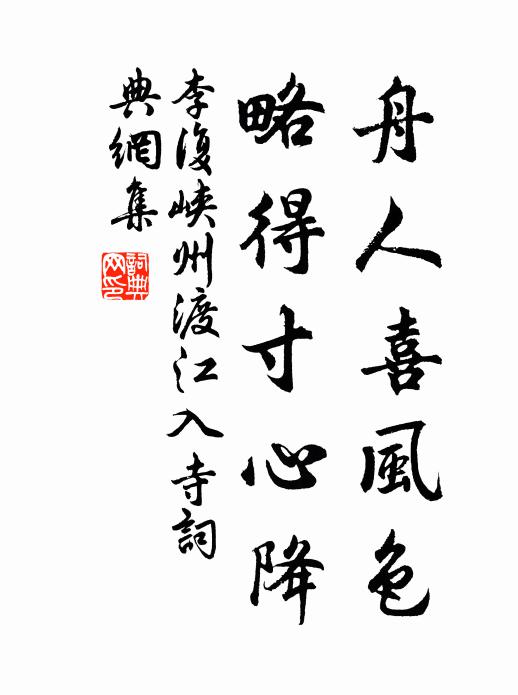 舟人喜風色
略得寸心降
李復峽州渡江入寺詞
典網集
詞典网印